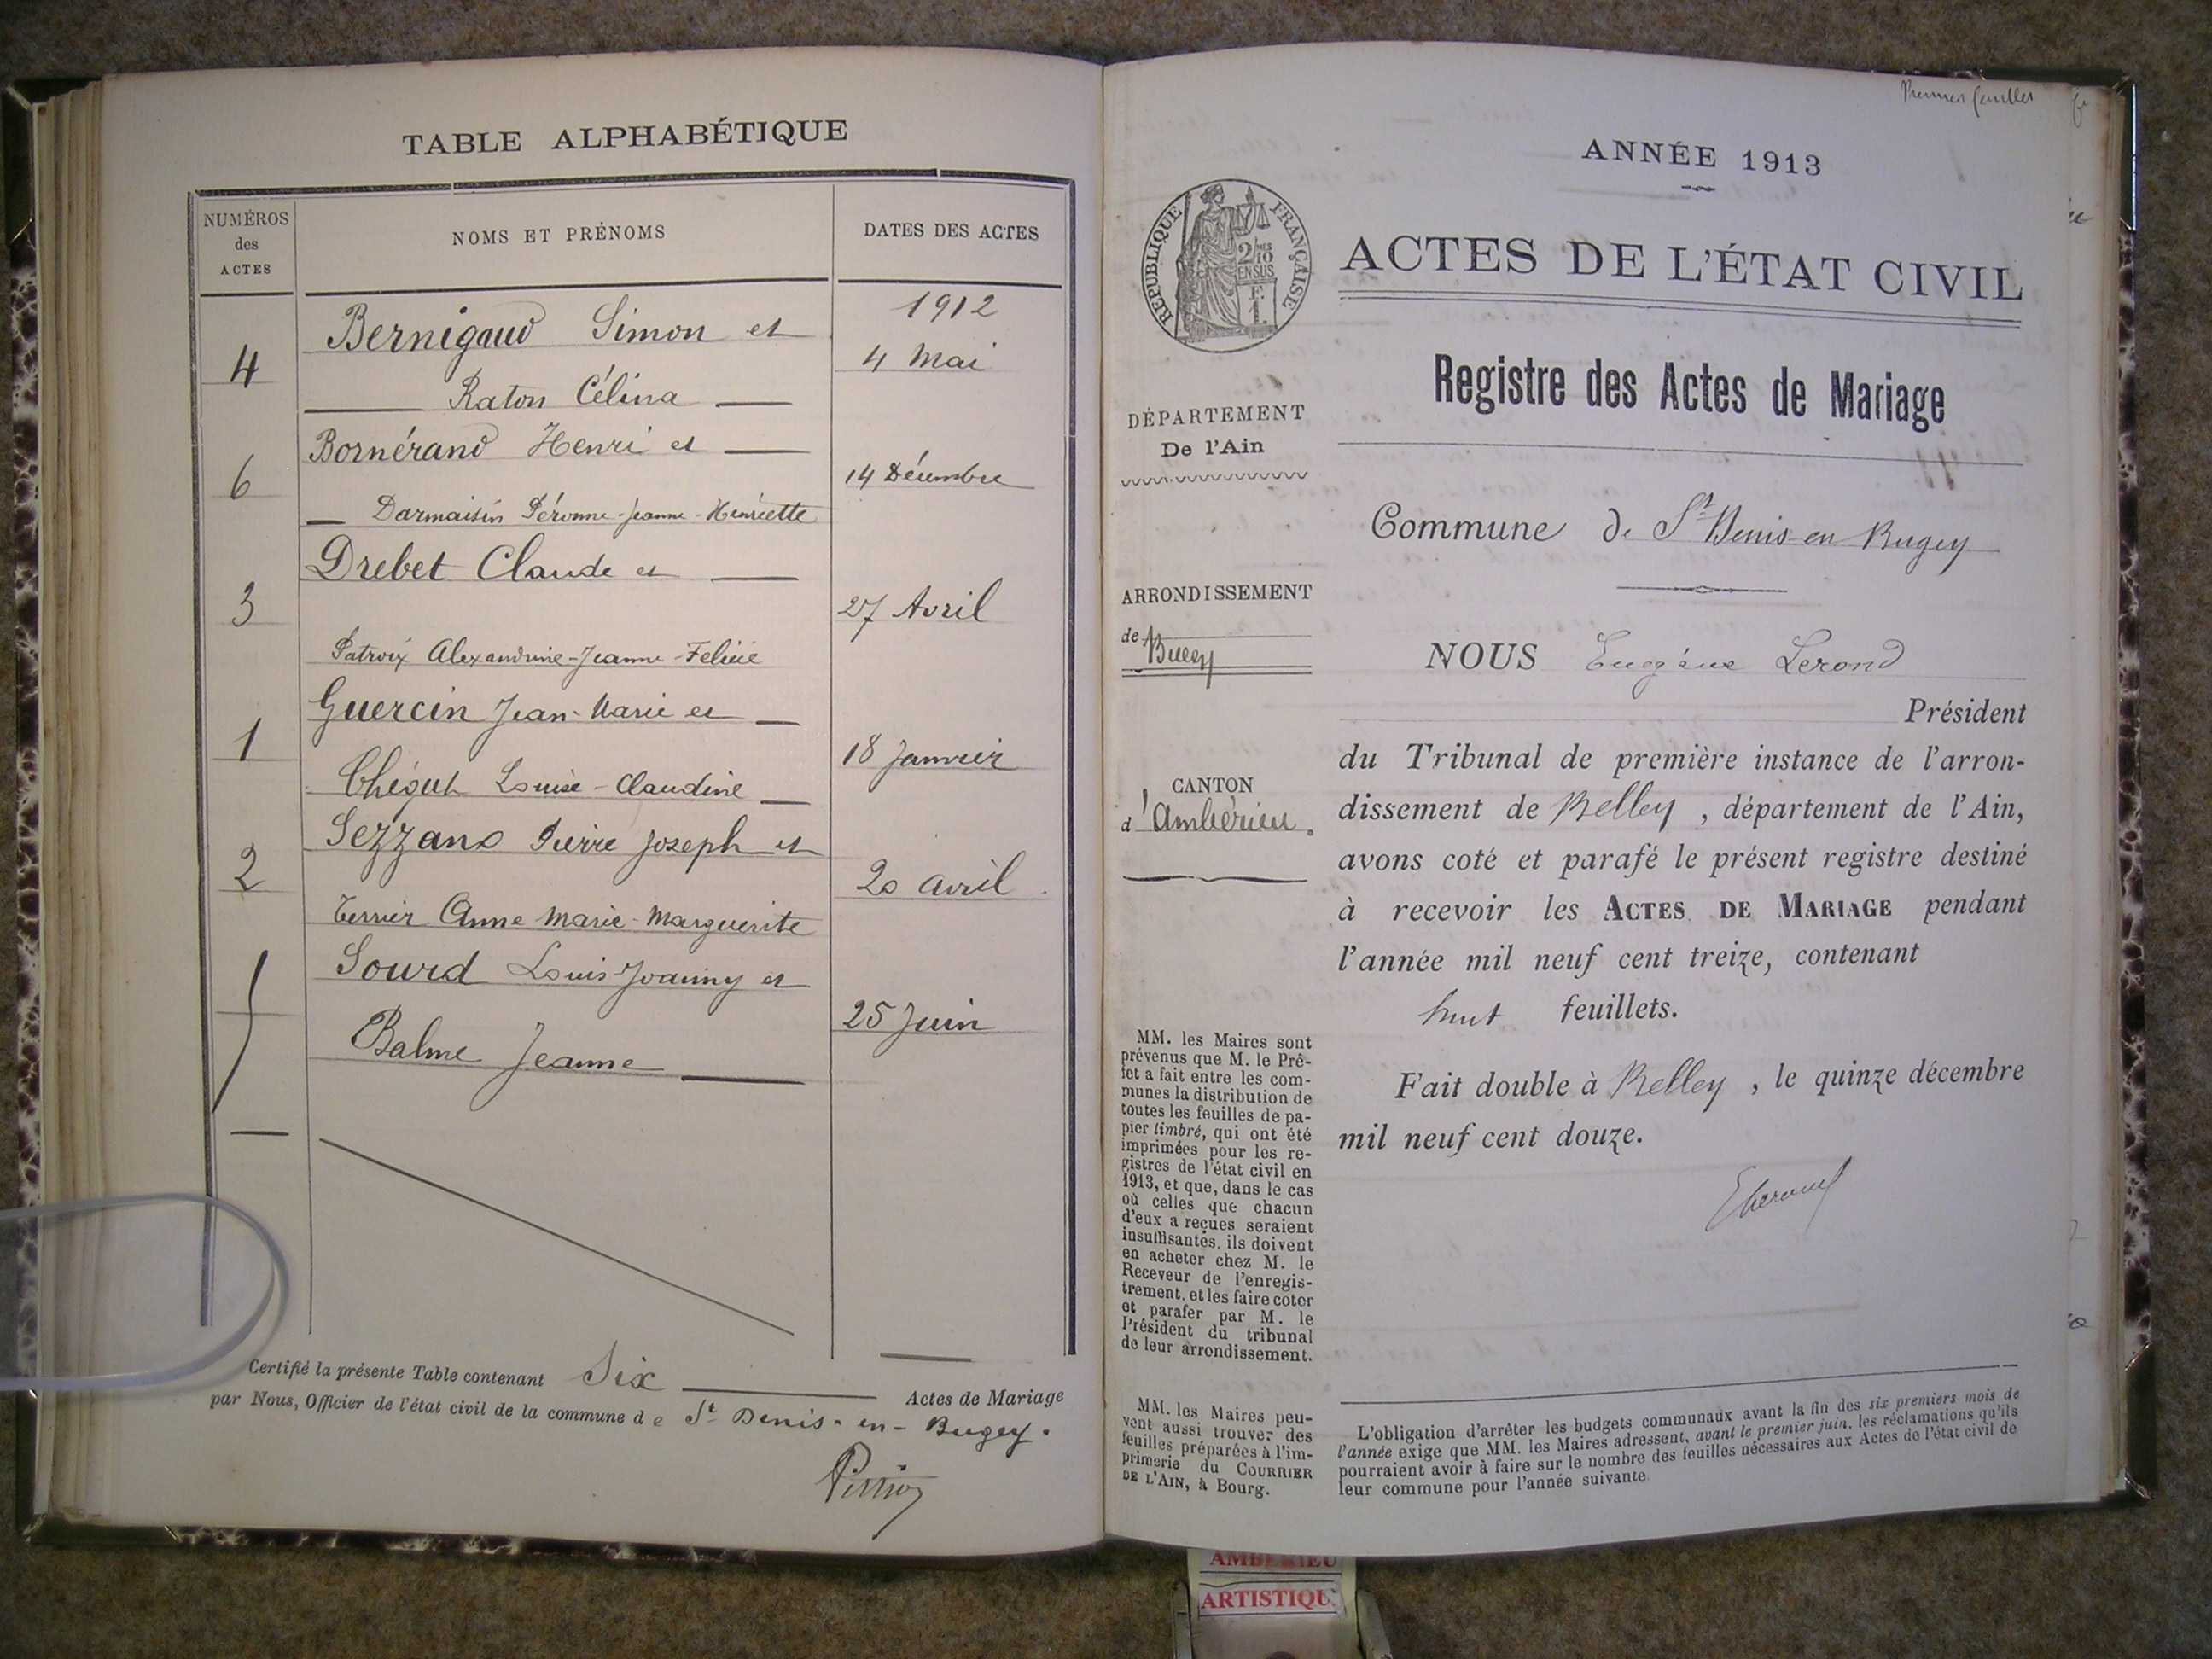 TABLE ALPHABÉTIQUE
NUMÉROS
des
ACTES
NOMS ET PRÉNOMS
DATES DES ACTES
1912
Bernigaud Simon et
4
4 Mai
Raton Célina
Bornérand Henri et
6
14 Décembre
Darmaisin Péronne-Jeanne-Henriette
Drebet Claude et
3
27 Avril
Patroix Alexandrine-Jeanne-Félicie
Guercin Jean-Marie et
1
18 Janvier
Louise-Claudine
Sezzano Pierre Joseph et
2
20 avril
Terrier Anne Marie-Marguerite
Sourd Louis Joanny et
5
25 Juin
Balme Jeanne
Certifié la présente Table contenant Six Actes de Mariage
par Nous, Officier de l'état civil de la commune de St Denis-en-Bugey.
Premier feuillet
ANNÉE 1913
RÉPUBLIQUE FRANÇAISE
2/10
EN SUS
F.
1.
ACTES DE L'ÉTAT CIVIL
Registre des Actes de Mariage
DÉPARTEMENT
De l'Ain
Commune de St Denis-en Bugey
ARRONDISSEMENT
de Belley
NOUS Eugène Lerond
Président
du Tribunal de première instance de l'arron-
dissement de Belley, département de l'Ain,
avons coté et parafé le présent registre destiné
à recevoir les ACTES DE MARIAGE pendant
l'année mil neuf cent treize, contenant
huit feuillets.
Fait double à Belley, le quinze décembre
mil neuf cent douze.
CANTON
d'Ambérieu.
MM. les Maires sont
prévenus que M. le Pré-
fet a fait entre les com-
munes la distribution de
toutes les feuilles de pa-
pier timbré, qui ont été
imprimées pour les re-
gistres de l'état civil en
1913, et que, dans le cas
où celles que chacun
d'eux a reçues seraient
insuffisantes, ils doivent
en acheter chez M. le
Receveur de l'enregis-
trement, et les faire coter
et parafer par M. le
Président du tribunal
de leur arrondissement.
MM. les Maires peu-
vent aussi trouver des
feuilles préparées à l'im-
primerie du COURRIER
DE L'AIN, à Bourg.
L'obligation d'arrêter les budgets communaux avant la fin des six premiers mois de
l'année exige que MM. les Maires adressent, avant le premier juin, les réclamations qu'ils
pourraient avoir à faire sur le nombre des feuilles nécessaires aux Actes de l'état civil de
leur commune pour l'année suivante.
AMBERIEU
ARTISTIQU